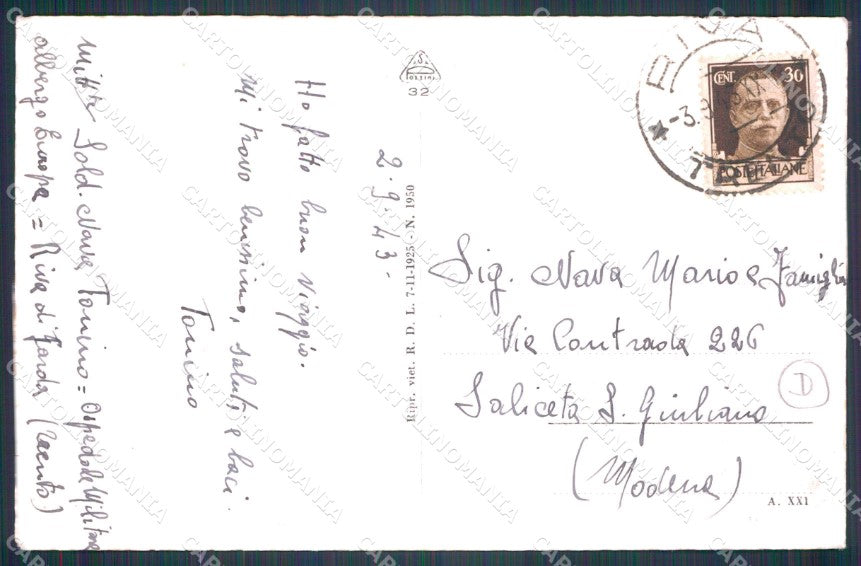 Mitt<sup>te</sup> Sold. Nava Tonino = Ospedale Militare
albergo Europa = Riva di Garda (Trento)
Ho fatto buon viaggio.
Mi trovo benissimo, saluti e baci.
Tonino
2.9.43-
32
Ripr. viet. R. D. L. 7-11-1925 - N. 1950
RIVA
-3.9
CENT 30
POSTE ITALIANE
Sig. Nava Mario e Famiglia
Via Contrada 226
Saliceta S. Giuliano
(Modena)
D
A. XXI
CARTOLINOMANIA